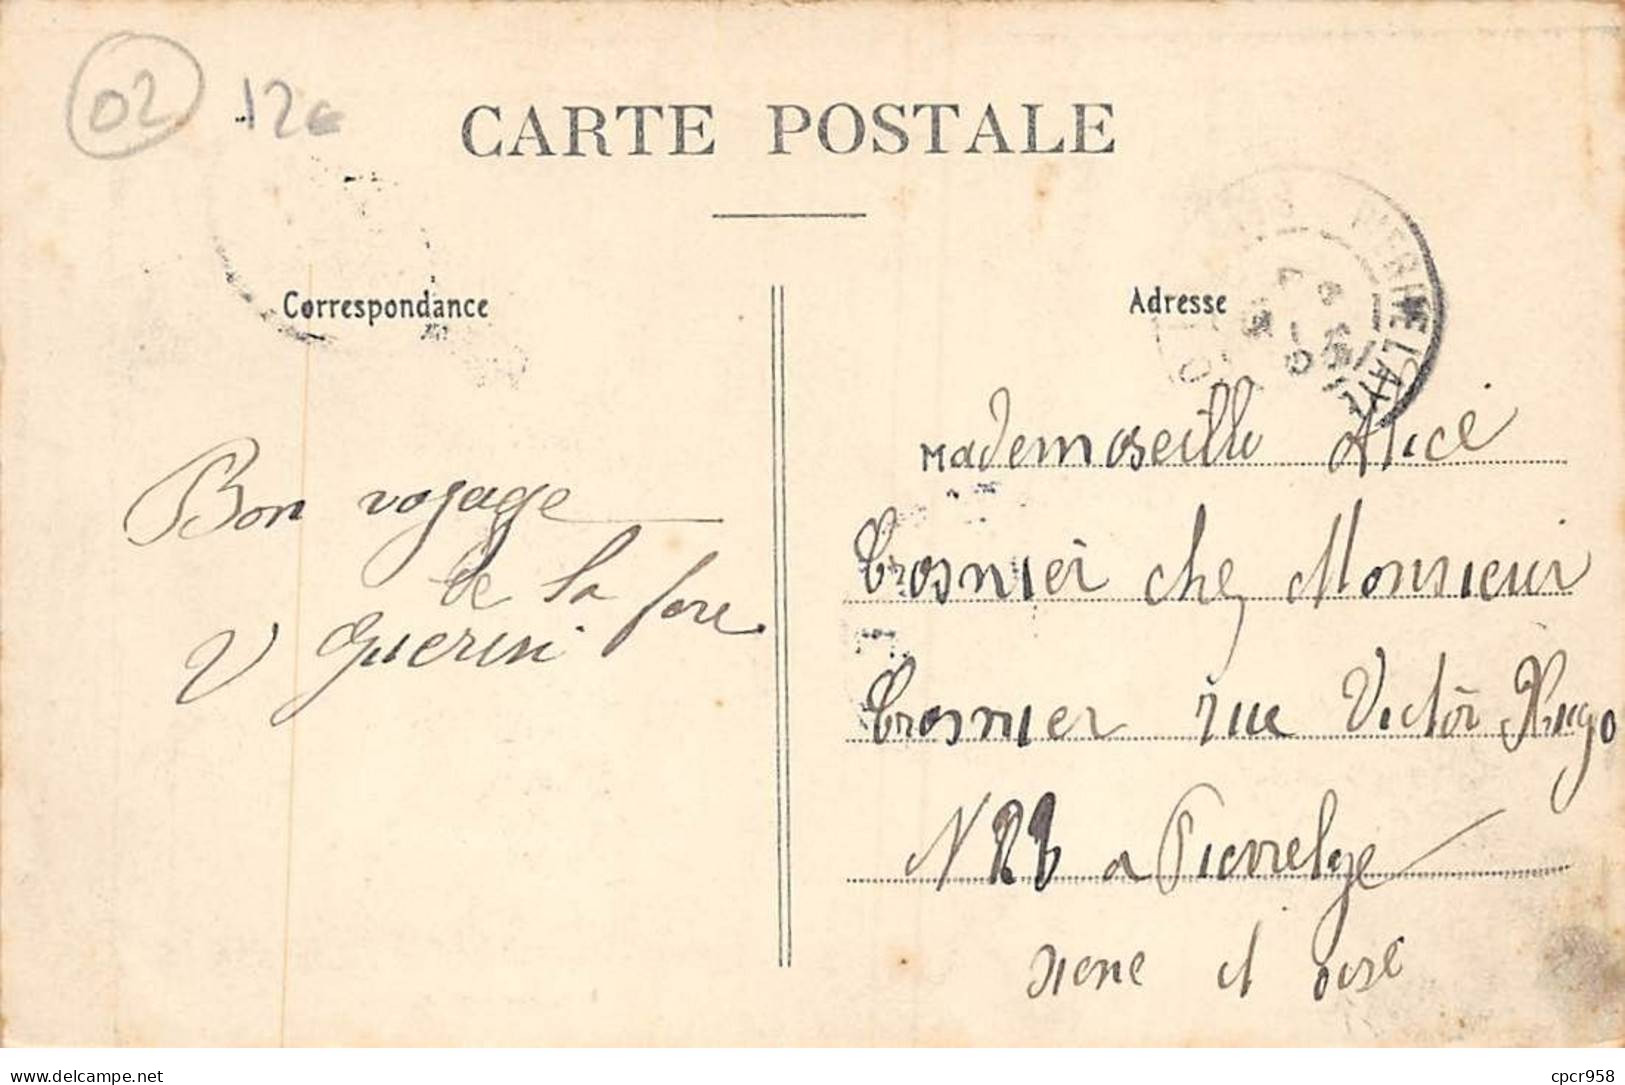 02
12€
CARTE POSTALE
Correspondance
Adresse
PIERRELAYE
Bon voyage
de la fore
V Guerin
Mademoiselle Alice
Crosnier chez Monsieur
Crosnier rue Victor Hugo
N a Pierrelaye
siene et oise
delcampe.net
cpcr958